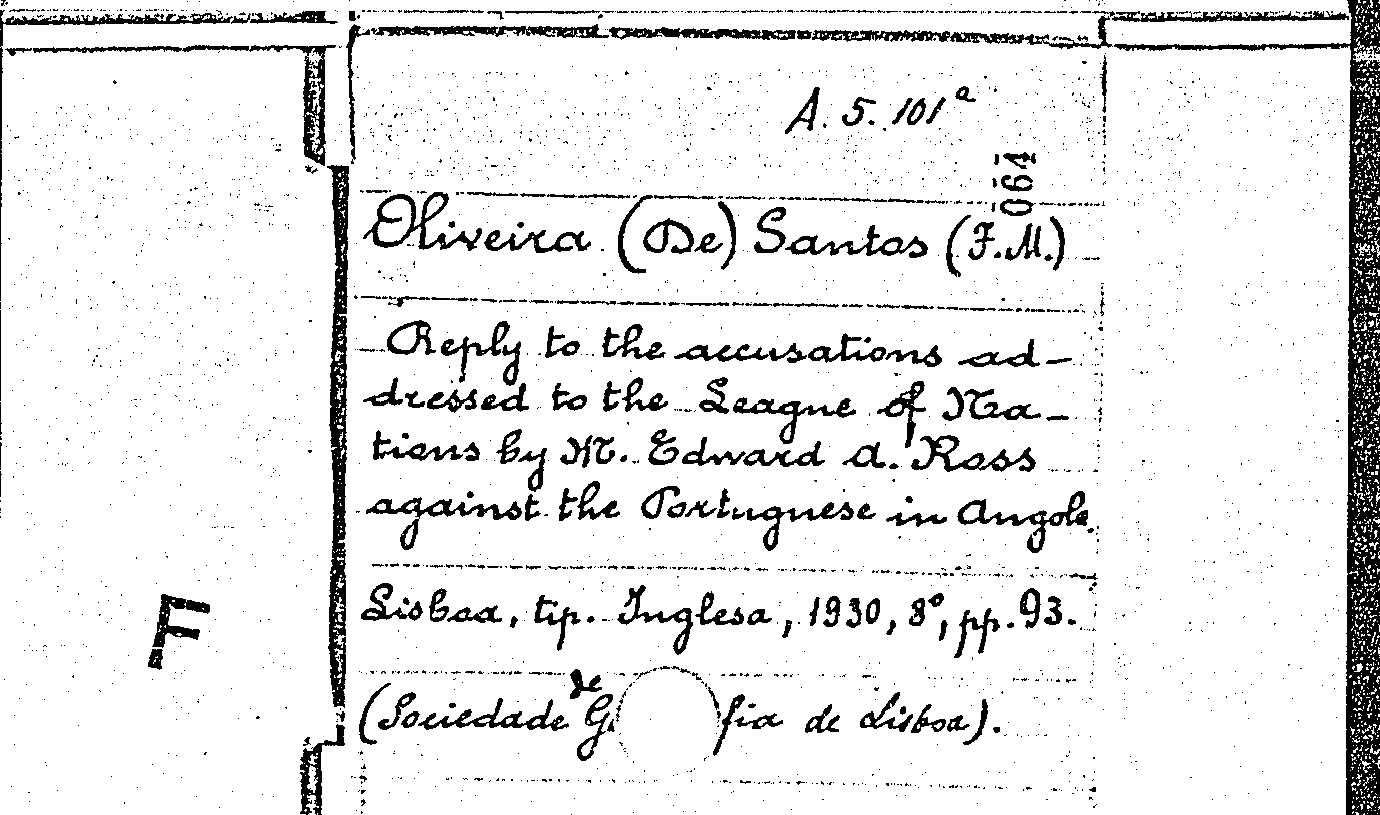 A. 5. 101ª
064
Oliveira (De) Santos (F.M.)
Reply to the accusations ad-
dressed to the League of Na-
tions by M. Edward A. Ross
against the Portuguese in Angola.
Lisboa, tip. Inglesa, 1930, 8º, pp. 93.
(Sociedade de G fia de Lisboa).
F